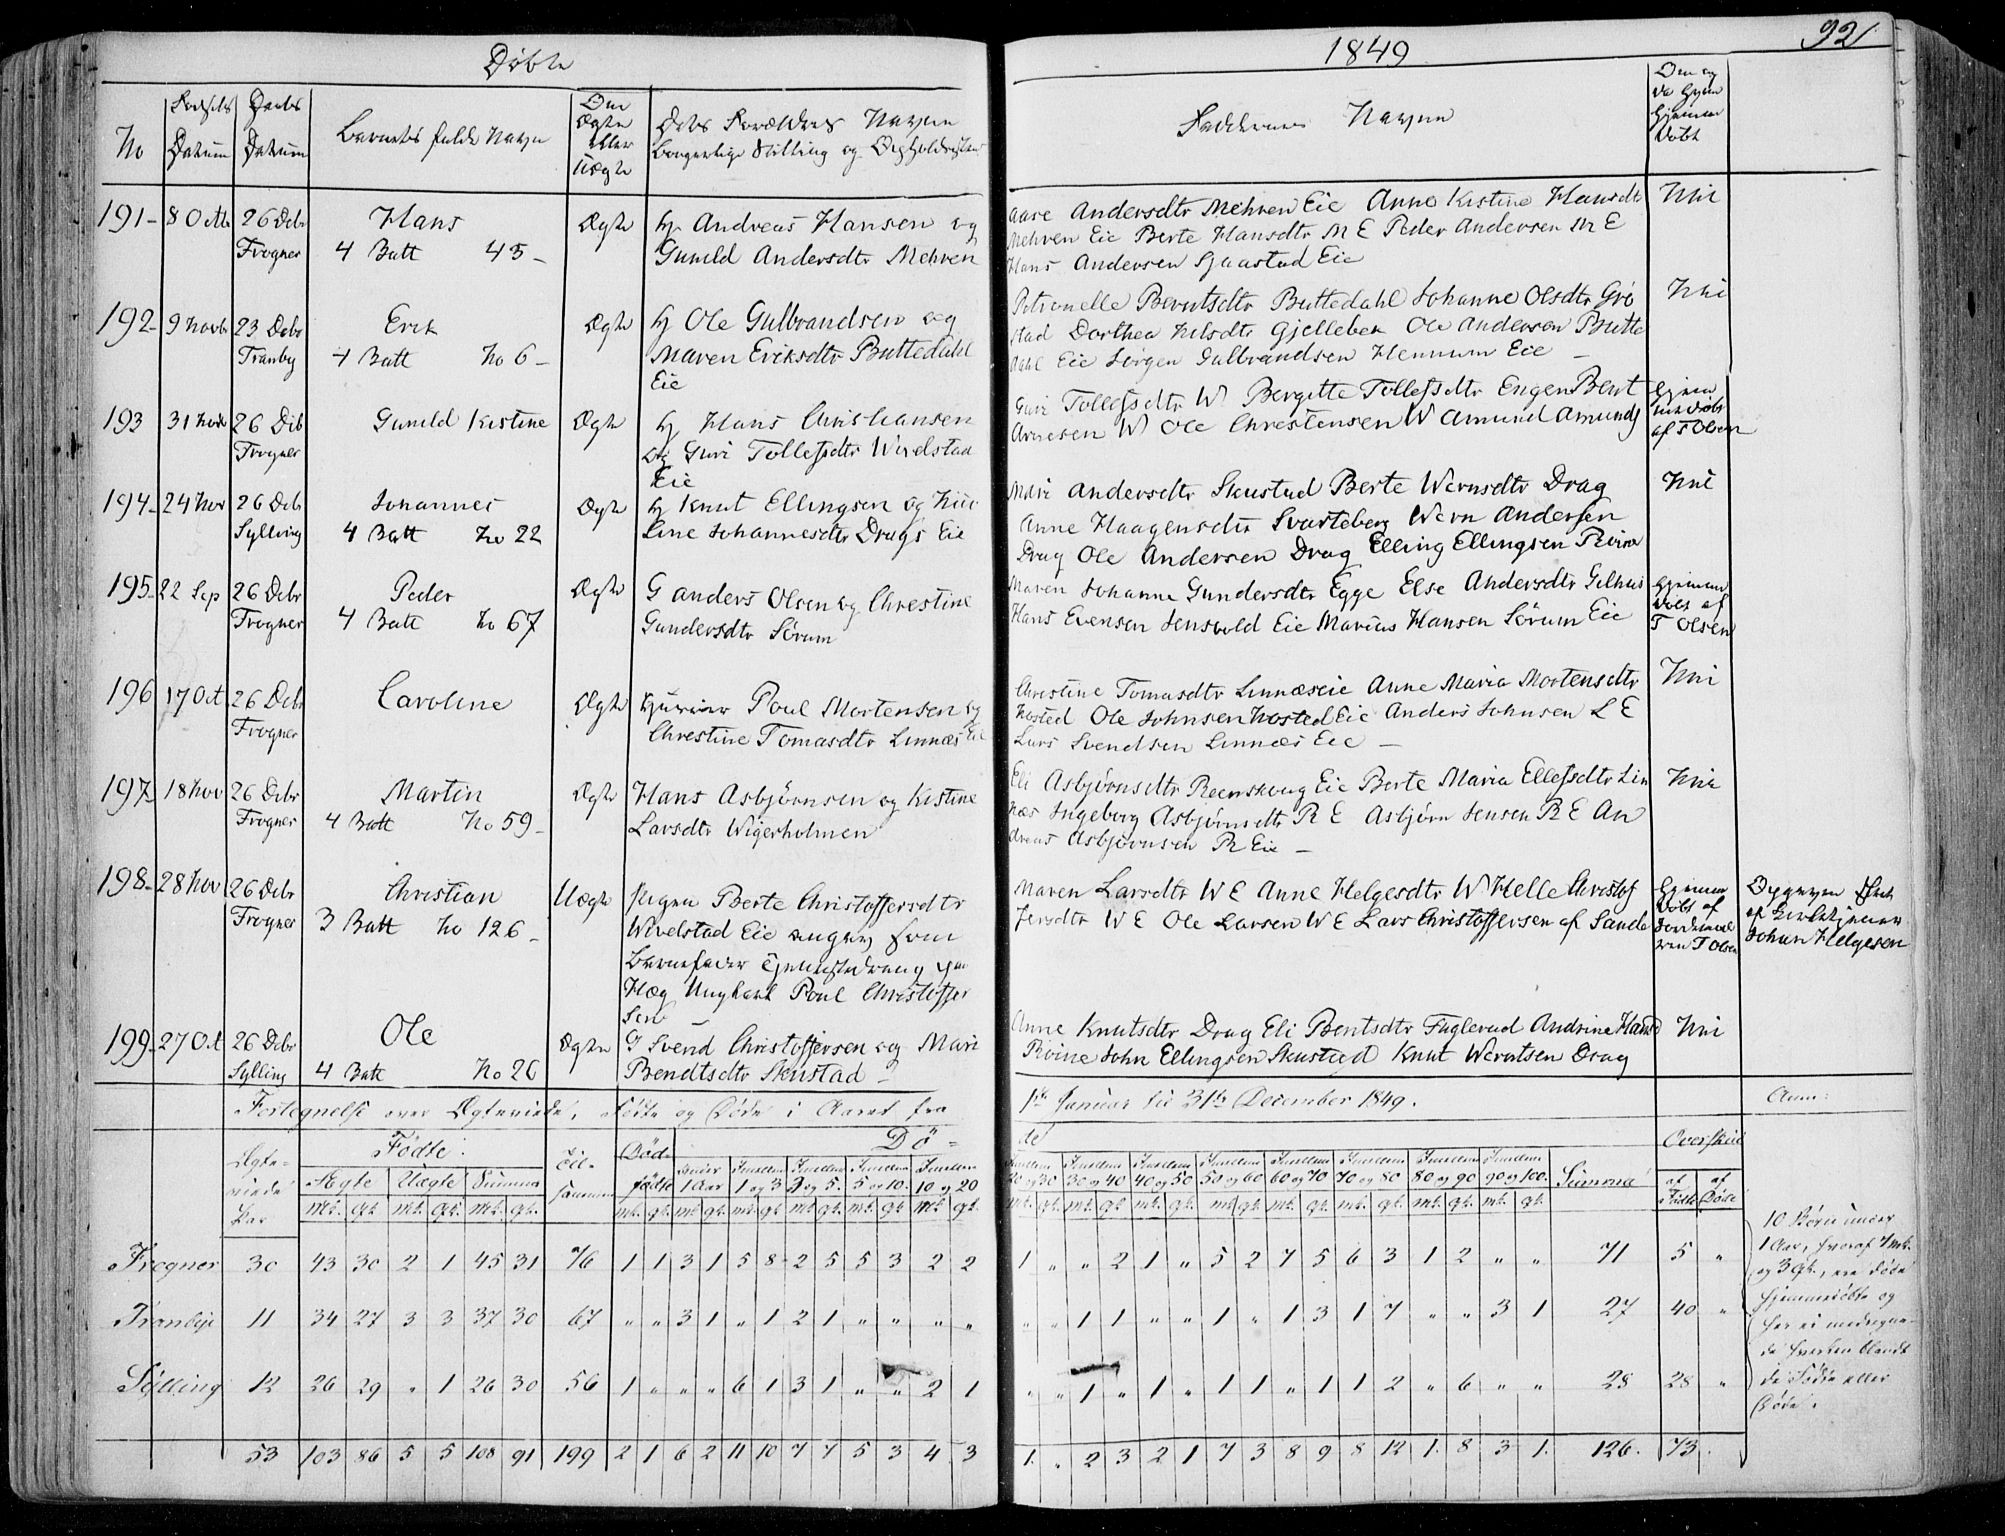 Døbte
1849
92
No
Datum
Datum
Barnets fulde Navn
Om Ægte eller Uægte
Forældres Navne
borgerlige Stilling og
Faddernes Navne
Om og
Døbt
191 8 Octb 26 Debr Frogner
Hans
4 Batt 45
Ægte
Andreas Hansen og
Gunild Andersdtr Mehren
Andersdtr Mehren Eie Anne Kistine Hansdtr
Mehren Eie Berte Hansdtr M E Peder Andersen M E
Hans Andersen Sjaastad Eie
Nei
192 9 Novb 23 Debr Tranby
Erik
4 Batt No 6
Ægte
Ole Gulbrandsen og
Maren Eriksdtr Buttedahl
Eie
Petronelle Berntsdtr Buttedahl Johanne Olsdtr Grø
stad Dorthea Nilsdtr Gjellebek Ole Andersen Butte
dahl Eie Jørgen Gulbrandsen Hennum Eie
Nei
193 31 26 Frogner
Gunild Kistine
Ægte
Hans Christiansen
og Guri Tollefsdtr Wivelstad
Eie
Guri Tollefsdtr W Bergitte Tollefsdtr Engen Bent
Arnesen W Ole Christensen W Amund Amunds
Hjem
af T Olsen
194 24 Nov 26 Deb Sylling
Johannes
4 Batt No 22
Ægte
Knut Ellingsen og
Line Johannesdtr Drags Eie
Mari Andersdtr Skustad Berte Wernsdtr Drag
Anne Haagensdtr Svarteberg Wern Andersen
Drag Ole Andersen Drag Elling Ellingsen Røine
Nei
195 22 Sep 26 Debr Frogner
Peder
4 Batt No 67
Ægte
G Anders Olsen og Christine
Gundersdtr Sørum
Maren Johanne Gundersdtr Egge Else Andersdtr Gilhus
Hans Evensen Jensvold Eie Marius Hansen Sørum Eie
Hjemme
døbt af
T Olsen
196 17 Oct 26 Debr Frogner
Caroline
Ægte
Poul Mortensen og
Christine Tomasdtr Linnæs Eie
Christine Tomasdtr Linnæseie Anne Maria Mortensdtr
Hosted Ole Johnsen Hosted Eie Anders Johnsen L E
Lars Svendsen Linnæs Eie
Nei
197 18 Nov 26 Debr Frogner
Martin
4 Batt No 59
Ægte
Hans Asbjørnsen og Kistine
Larsdtr Wigerholmen
Eli Asbjørnsdtr Reenskoug Eie Berte Maria Ellefsdtr Lin
næs Ingeborg Asbjørnsdtr R E Asbjørn Jensen R E An
dreas Asbjørnsen R Eie
Nei
198 28 Nov 26 Debr Frogner
Christian
3 Batt No 126
Uægte
Pigen Berte Christoffersdtr
Wivelstad Eie som
Barnefader
Hæg Ungkarl Poul Christoffer
sen
Maren Larsdtr W E Anne Helgesdtr W Helle Christof
fersdtr W E Ole Larsen W E Lars Christoffersen af Sande
Hjemme
døbt af
T Olsen
Johan Helgesen
199 27 Oct 26 Debr Sylling
Ole
4 Batt No 26
Ægte
G Svend Christoffersen og Mari
Bendtsdtr Skustad
Anne Knutsdtr Drag Eli Bentsdtr Fuglerud Andrine Hans
Røine John Ellingsen Skustad Knut Werntsen Drag
Nei
Fortegnelse over Ægteviede, Fødte og Døde i Aaret fra
1ste Januar til 31te December 1849.
Anm:
Ægteviede Par
Fødte
Ægte Uægte Summa
Tilsammen
Dødfødte
Døde
under 1 Aar
Imellem 1 og 3
Imellem 3 og 5
Imellem 5 og 10
Imellem 10 og 20
Imellem 20 og 30
Imellem 30 og 40
Imellem 40 og 50
Imellem 50 og 60
Imellem 60 og 70
Imellem 70 og 80
Imellem 80 og 90
Imellem 90 og 100
Summa
Overskud
af Fødte
af Døde
Frogner 30 43 30 2 1 45 31 76 1 1 3 1 5 8 2 5 5 3 2 2
1 „ „ 2 1 „ 5 2 7 5 6 3 1 2 „ „ 71 5 „
Tranbye 11 34 27 3 3 37 30 67 „ „ 3 1 „ 1 2 1 „ „ „ „
„ „ 1 1 „ „ 1 „ 1 3 1 7 „ „ 3 1 27 40 „
Sylling 12 26 29 „ 1 26 30 56 1 „ „ „ 6 1 3 1 „ „ 2 1
„ „ 1 „ 1 „ 1 1 „ 1 1 2 „ 6 „ „ 28 28 „
53 103 86 5 5 108 91 199 2 1 6 2 11 10 7 7 5 3 4 3
1. „ 2 3 2 1 7 3 8 9 8 12 1 8 3 1. 126. 73.
10 Børn under
1 Aar, hvoraf 7 mk.
og 3 Qk., ere døde
hjemmedøbte og
her ei medregne-
de hverken blandt
de Fødte eller
Døde.